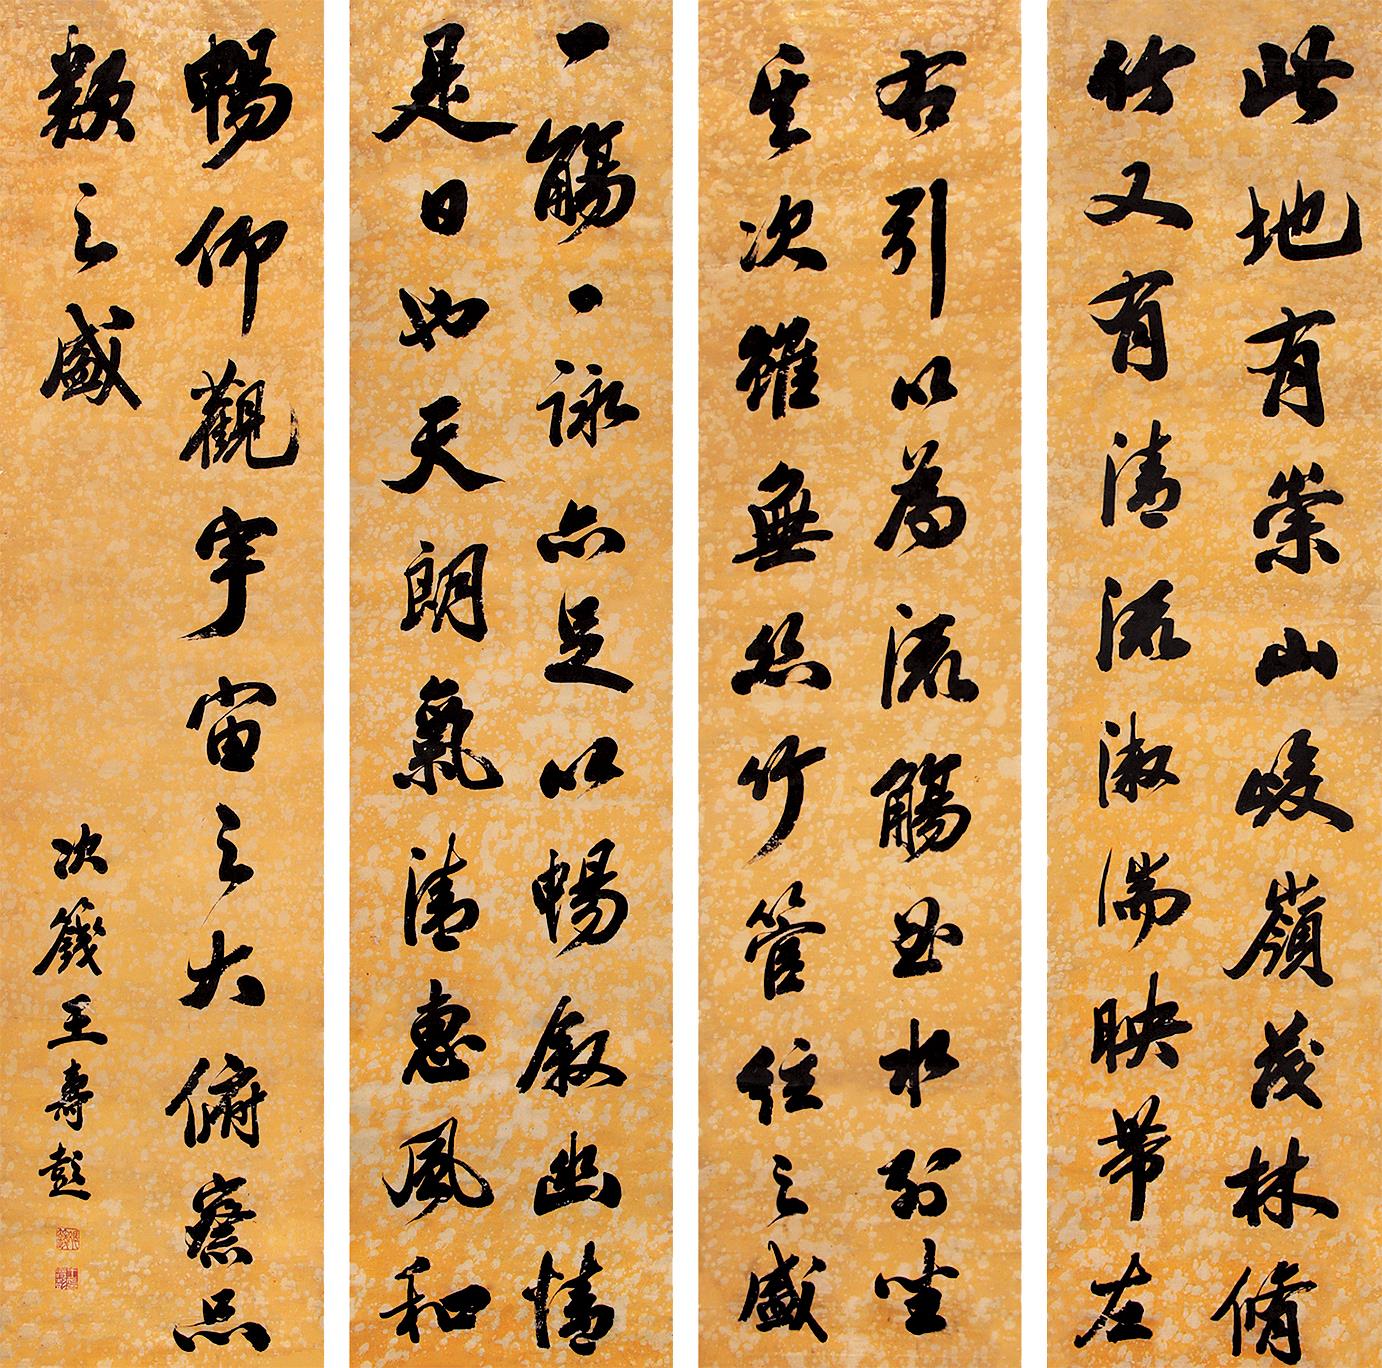 此地有崇山峻嶺茂林脩
竹又有清流激湍映帶左
右引以為流觴曲水列坐
其次雖無絲竹管絃之盛
一觴一詠亦足以暢叙幽情
是日也天朗氣清惠風和
暢仰觀宇宙之大俯察品
類之盛
次籛王壽彭